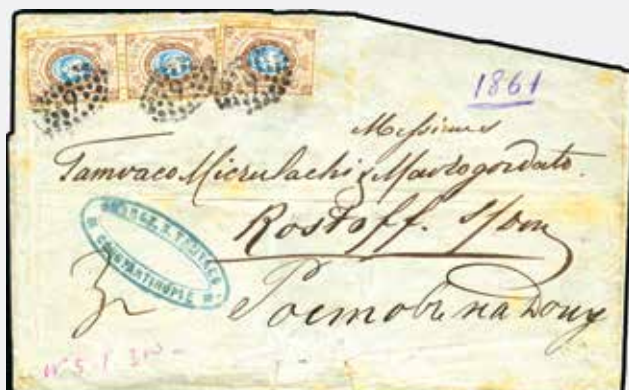 1861
Messieurs
Tamvaco Micrulachi & Mavrogordato.
Rostoff. s/Don
Ростовѣ на Дону
CONSTANTINOPLE